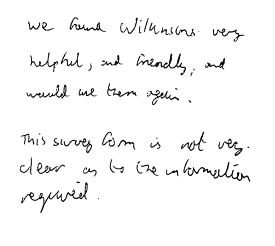 we found Wilkinsons very
helpful, and friendly, and
would use them again.
This survey form is not very
clear as to the information
required.